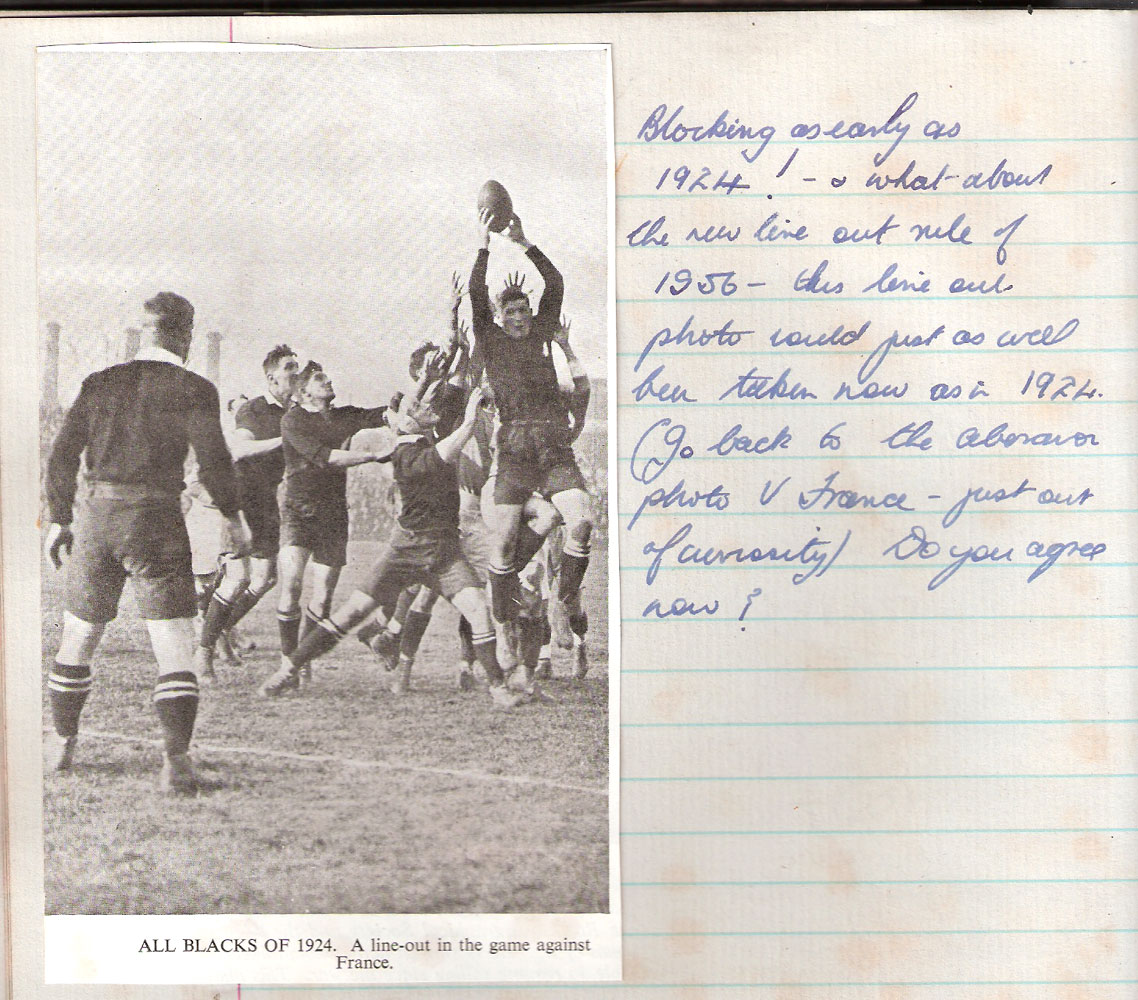 Blocking as early as
1924! - & what about
the new line out rule of
1956 - this line out
photo could just as well
been taken now as in 1924.
(Go back to the
photo V France - just out
of curiosity) Do you agree
now ?
ALL BLACKS OF 1924. A line-out in the game against
France.